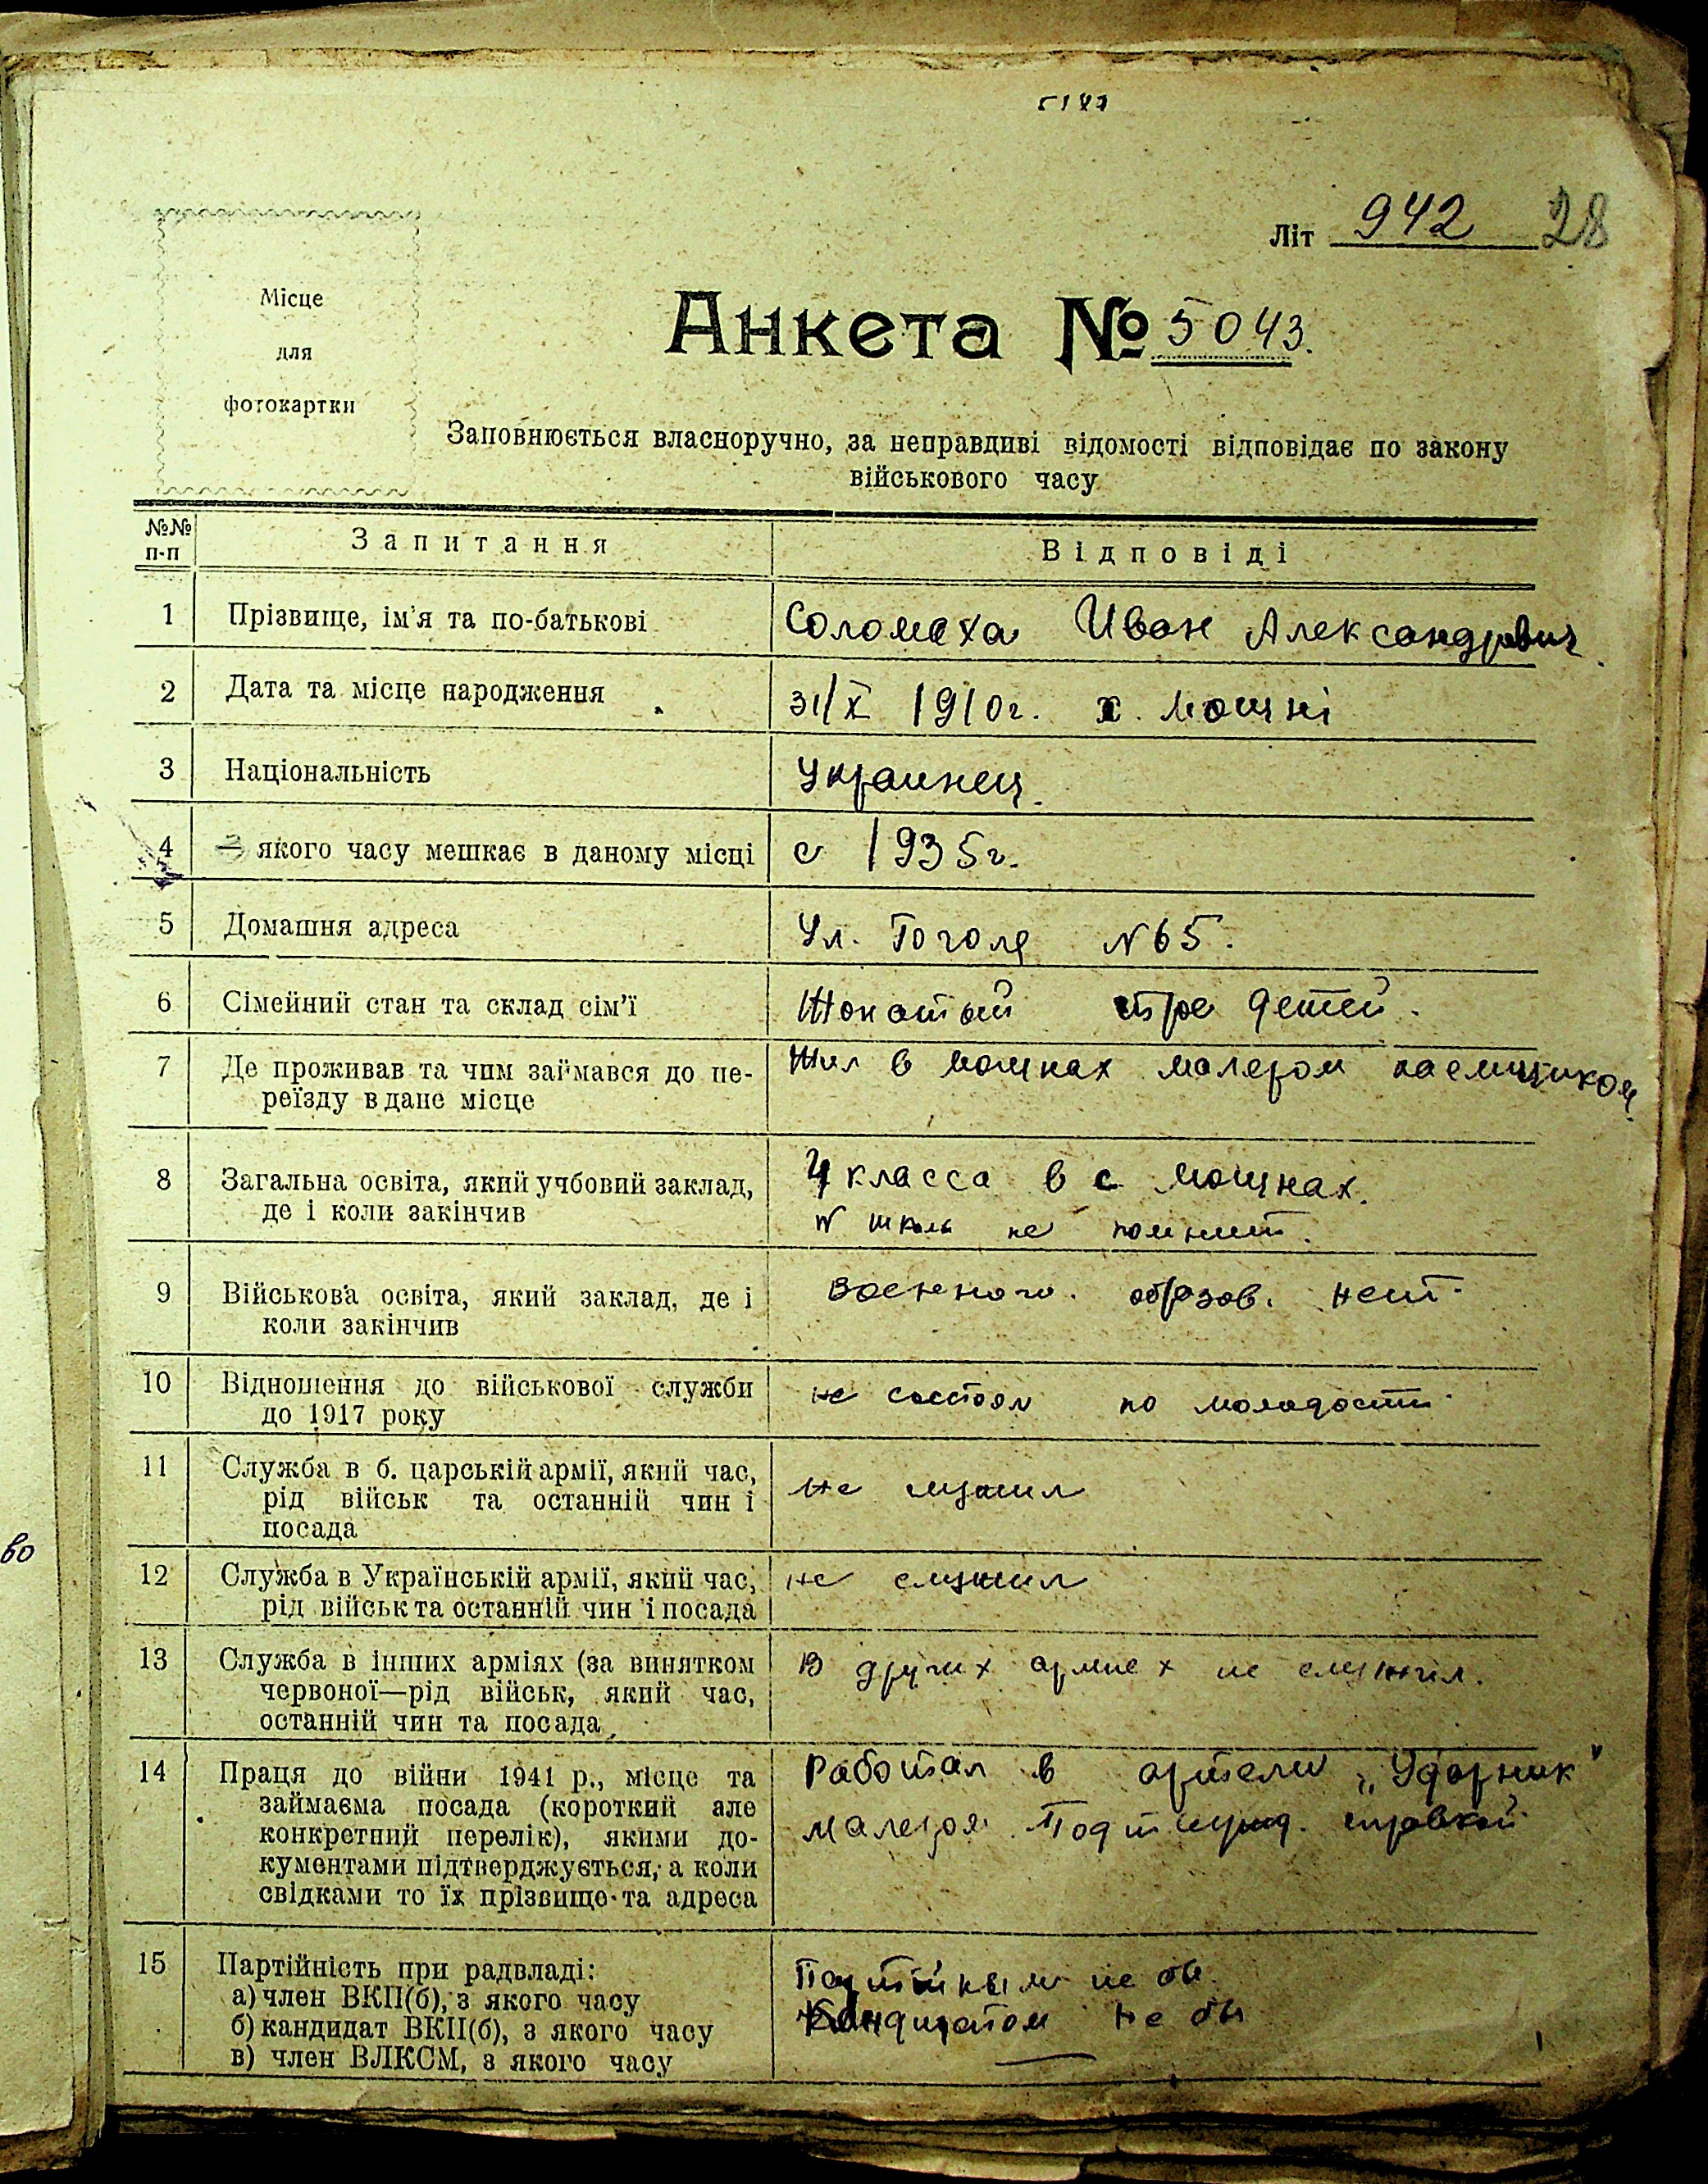 Літ 942 28
Місце
для
фотокартки
Анкета № 5043.
Заповнюється власноручно, за неправдиві відомості відповідає по закону
військового часу
№№
п-п
Запитання
Відповіді
1 Прізвище, ім'я та по-батькові Соломаха Иван Александрович
2 Дата та місце народження 31/X 1910г. х. Мошні
3 Національність Украинец
4 З якого часу мешкає в даному місці с 1935г.
5 Домашня адреса Ул. Гоголя N65.
6 Сімейний стан та склад сім'ї Жонатый трое детей.
7 Де проживав та чим займався до пе-
реїзду в дане місце
Жил в Мошнах малером
8 Загальна освіта, який учбовий заклад,
де і коли закінчив
4 класса в с Мошнах.
N школы не помнит.
9 Військова освіта, який заклад, де і
коли закінчив
Военного. образов. нет.
10 Відношення до військової служби
до 1917 року
не состоял по молодости
11 Служба в б. царській армії, який час,
рід військ та останній чин і
посада
Не служил
12 Служба в Українській армії, який час,
рід військ та останній чин і посада
не служил
13 Служба в інших арміях (за винятком
червоної—рід військ, який час,
останній чин та посада
В других армиех не служил.
14 Праця до війни 1941 р., місце та
займаєма посада (короткий але
конкретний перелік), якими до-
кументами підтверджується, а коли
свідками то їх прізвище та адреса
Работал в артели „Ударник"
малером справкой
15 Партійність при радвладі:
а) член ВКП(б), з якого часу
б) кандидат ВКП(б), з якого часу
в) член ВЛКСМ, з якого часу
Партийным не бы
Кандидатом не бы
во